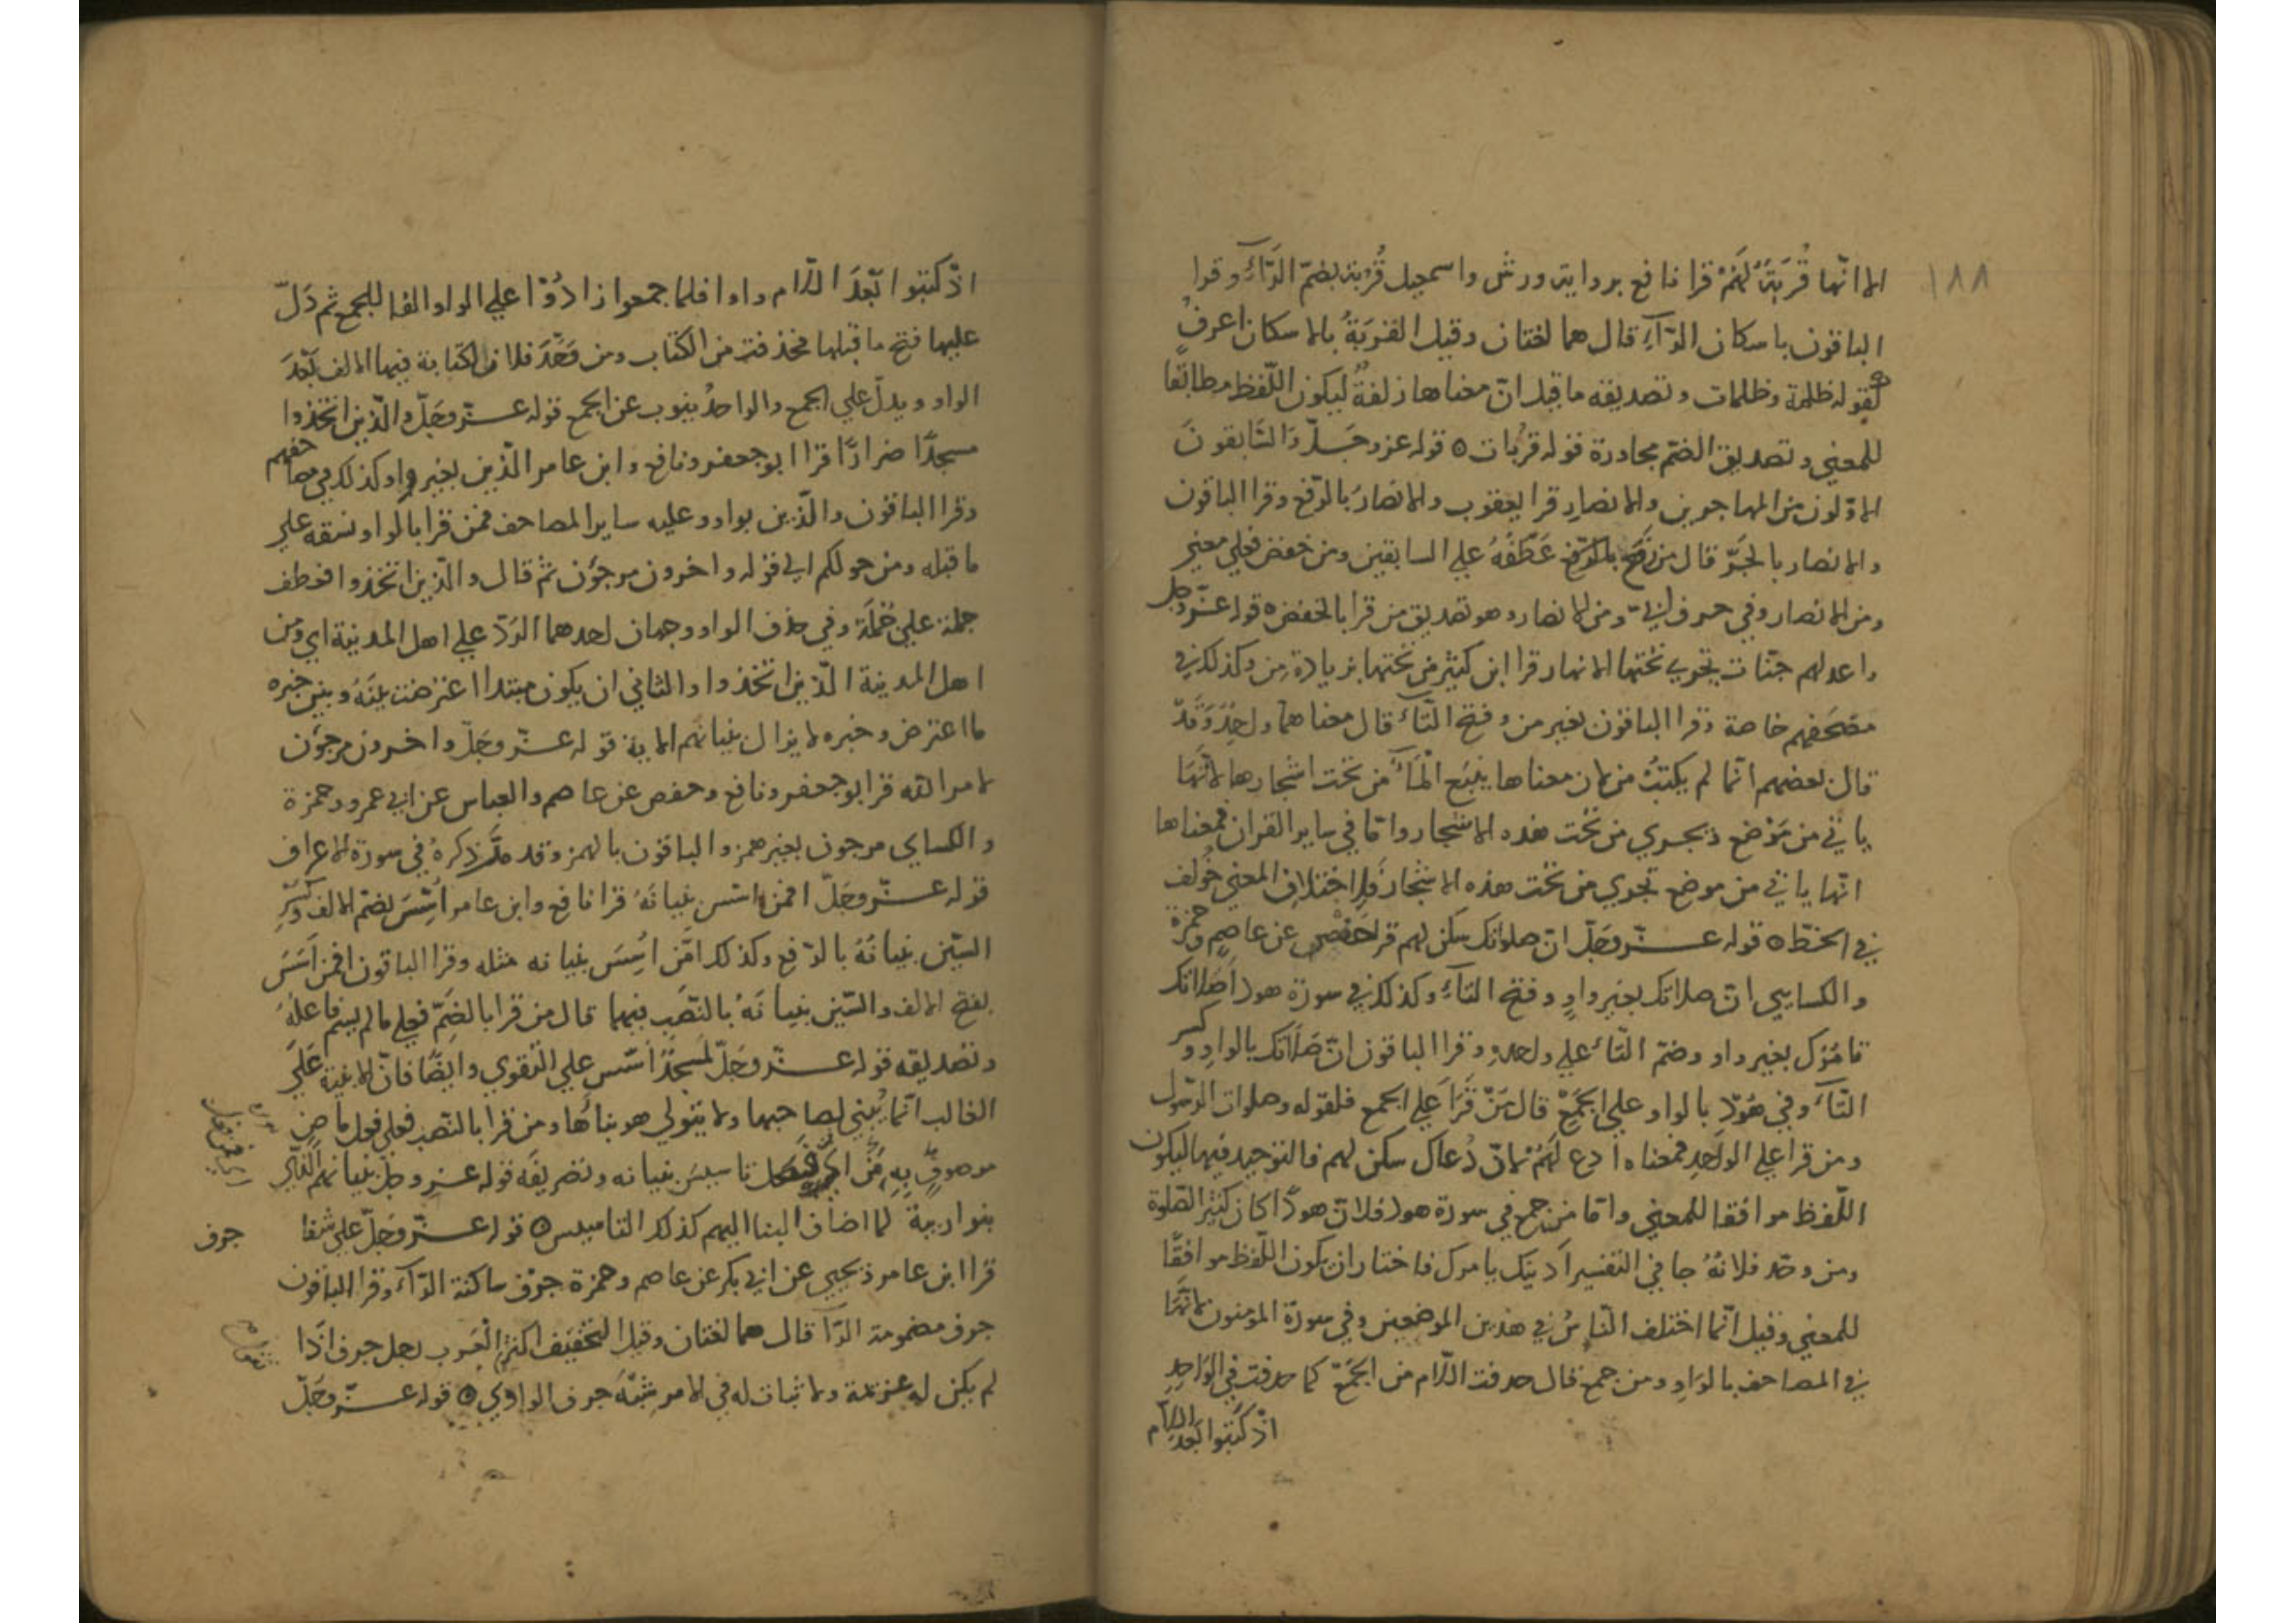 ١٨٨
الا انها قُربَةٌ لَهُمْ قرا نافع برواية ورش واسمعيل قُرُبة بضمّ الرّآءِ وقرا
الباقون باسكان الرّآءِ قال هما لغتان وقيل القُرْبَةُ بالاسكان اعرفُ
كقوله ظلمة وظلمات وتصديقه ما قيل انّ معناها زلفةٌ ليكون اللّفظ مطابقًا
للمعني وتصديق الضمّ مجاورة قوله قربات ه قوله عزوجَلّ وَالسّابقونَ
الاوّلون من المهاجرين والانصارِ قرا يعقوب والانصارُ بالرّفع وقرا الباقون
والانصار بالجَرّ قال من رفع عَطَفَهُ علي السابقين ومن خفض فعلي معني
ومن الانصار وفي حرف ابيّ ومن الانصار وهو تصديق من قرا بالخفض ه قوله عزّوجل
واعد لهم جنّات تجري تحتها الانهار قرا ابن كثير من تحتها بزيادة مِن وكذلك في
مصحفهم خاصة وقرا الباقون بغير من وفتح التّآء قال معناهما واحِدٌ وَقَدْ
قال بعضهم انّما لم يكتبْ من لان معناها ينبع الْمَآءُ من تحت اشجارها لا انّها
ياتي من مَوْضع وتجري من تحت هذه الاشجار وامّا في ساير القران فمعناها
انّها ياتي من موضع تجري من تحت هذه الاشجار فلاختلاف المعني خُولف
في الخطّ ه قوله عزّوجَلّ انّ صلواتك سكن لهم قرا حفص عن عاصم وحمزة
والكسايي انّ صلاتك بغير واوٍ وفتح التآءِ وكذلك في سورة هود اَصَلاتك
تامُرُك بغير واو وضمّ التّاء علي واحدةٍ وقرا الباقون انّ صَلَاتك بالواو وكسر
التّآء وفي هُوْد بالواو علي الجَمْع قال مَنْ قَرَا علي الجمع فلقوله وصلوات الرّسول
ومن قرا علي الواحدِ فمعناه ادع لَهُمْ لانّ دُعاك سكن لهم فالتوحيد فيها ليكون
اللّفظ موافقا للمعني وامّا من جمع في سورة هود فلانّ هودًا كان كثير الصّلوة
ومن وحّد فلانّهُ جا في التفسير اَدينك يامرك فاختار ان يكون اللّفظ موافقًا
للمعني وقيل انّما اختلف النّاسُ في هذين الموضعين وفي سورة المومنون لانّهَا
في المصاحف بالواوِ ومن جمع قال حدفت اللّام من الجَمْع كما حدفت في الواحدِ
اذْ كَتبوا بَعد اللّام
اذْ كتبوا بَعْدَ اللّام واوا فلما جمعوا زادُوْا علي الواو الفا للجمع ثم دَلّ
عليها فتح ما قبلها فحذفت من الكتاب ومن وَحّدَ فلان الكتابة فيها الالف بَعْدَ
الواو ويدلّ علي الجمع والواحدُ ينوب عن الجمع قوله عزّوجَلّ والّذين اتخذوا
مسجدًا ضرارًا قرا ابو جعفر ونافع وابن عامر الّذين بغير واو وكذلك في مصاحفهم
وقرا الباقون والّذين بواو وعليه ساير المصاحف فمن قرا بالواو نسقه علي
ما قبله ومن حولكم الي قوله واخرون مرجؤن ثمّ قال والّذين اتخذوا فعطف
جملة علي جُملَةٍ وفي حذف الواو وجهان احدهما الرَدّ علي اهل المدينة اي ومن
اهل المدينة الّذين اتخذوا والثاني ان يكون مبتدا اعترضت بينَهُ وبين خبره
ما اعترض وخبره لا يزال بنيانهم الاية قوله عزّوجَلّ واخرون مرجؤن
لامر الله قرا ابو جعفر ونافع وحفص عن عاصم والعباس عن ابي عمرو وحمزة
والكساي مرجون بغير همز والباقون بالهمز وقد مَرّ ذكرهُ في سورة الاعراف
قوله عزّوجَلّ افمن اسّس بنيانَهُ قرا نافع وابن عامر اُسِّسَ بضمّ الالف وكَسْرِ
السّين بنيانُهُ بالرّفع وكذلك امّن اُسِّسَ بنيانه مثله وقرا الباقون افمن اَسّسَ
بفتح الالف والسّين بنيانَهُ بالنّصَب فيهما قال من قرا بالضّمّ فعلي ما لم يسمّ فاعلُهُ
وتصديقه قوله عزّوجَلّ لَمسجدٌ اسّس علي التقوي وايضًا فانّ الابنية عَلَي
الغالب انّما يُبْني لصاحبها ولا يتولي هو بناءُها ومن قرا بالنّصب فعلي فعل ماضٍ
موصوفٍ بِهِ مَنْ تاسيسَ بنيانه وتصريفَه قوله عزوجلّ بنيانهم الّذي
بنوا ريبة لما اضاف البنا اليهم كذلك التاسيس ه قوله عزّوجَلّ علي شفا
جرف
قرا ابن عامر ويحيي عن ابي بكر عن عاصم وحمزة جرْف ساكنة الرّآء وقرا الباقون
جرف مضمومة الرّآ قال هما لغتان وقيل التخفيف اكثر الْعَرب رجل جرف اِذَا
لم يكن له عزيمة ولا ثبات له في الامر شبّهَ جرف الوادي ه قوله عزّوجَلّ